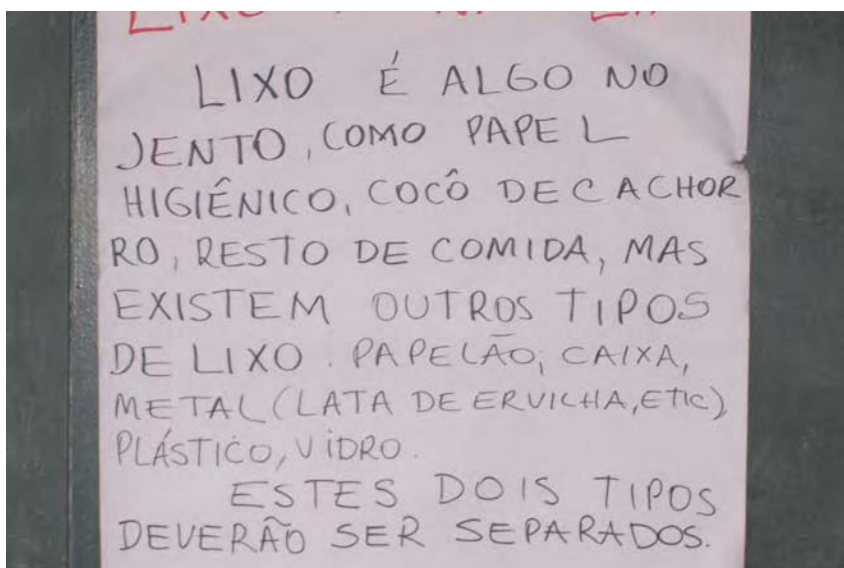 LIXO É ALGO NO
JENTO, COMO PAPEL
HIGIÊNICO, COCÔ DE CACHOR
RO, RESTO DE COMIDA, MAS
EXISTEM OUTROS TIPOS
DE LIXO. PAPELÃO, CAIXA,
METAL (LATA DE ERVILHA, ETIC),
PLÁSTICO, VIDRO.
ESTES DOIS TIPOS
DEVERÃO SER SEPARADOS.